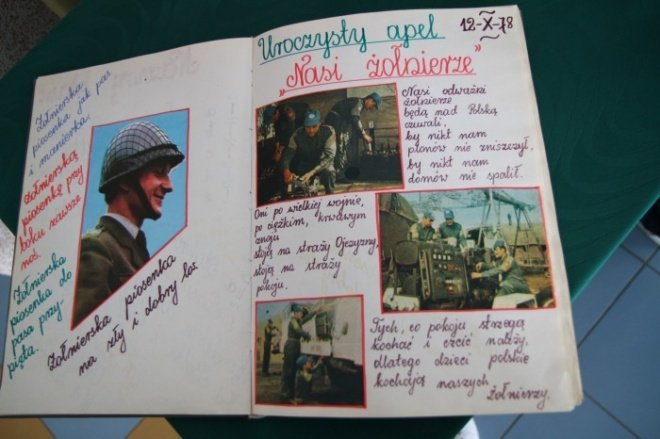 Żołnierska
piosenka jak pas
i manierka.
Żołnierską
piosenkę przy
boku zawsze
noś.
Żołnierska
piosenka do
pasa przy-
pięta.
Żołnierska piosenka
na zły i dobry los
Uroczysty apel
12-X-78
"Nasi żołnierze"
Nasi odważni
żołnierze
będą nad Polską
czuwali,
by nikt nam
plonów nie zniszczył,
by nikt nam
domów nie spalił.
Oni po wielkiej wojnie,
po ciężkim, krwawym
znoju
stoją na straży Ojczyzny,
stoją na straży
pokoju.
Tych, co pokoju strzegą
kochać i czcić należy,
dlatego dzieci polskie
kochają naszych
żołnierzy.